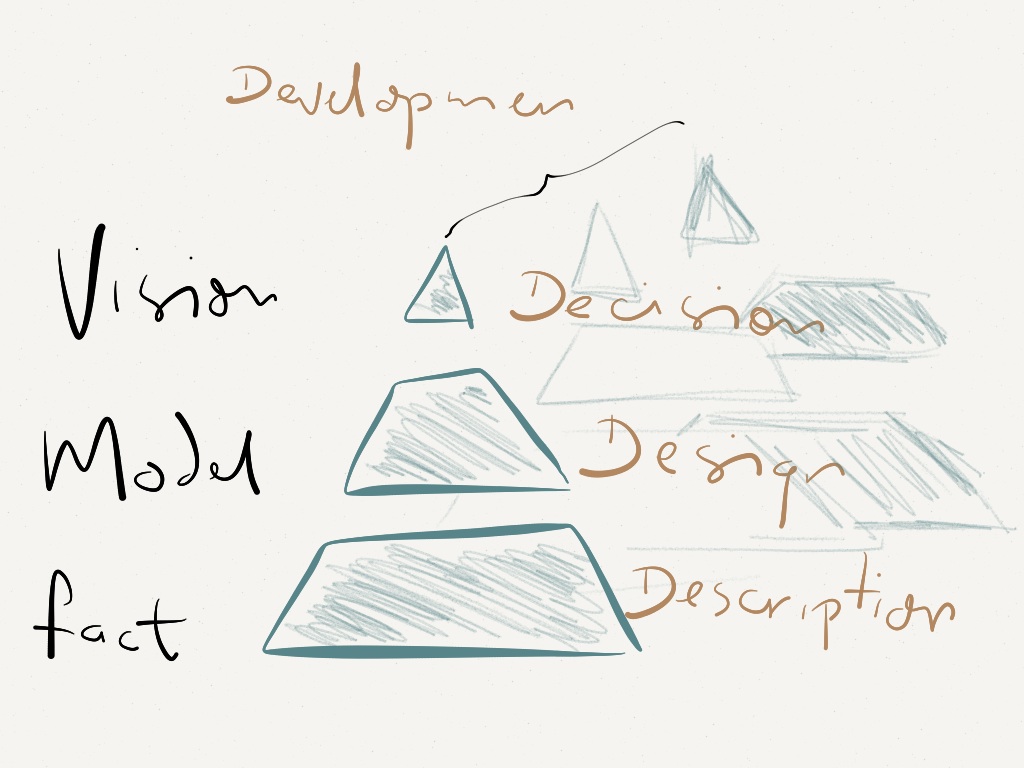 Developmen
Vision
Decision
Model
Design
fact
Description